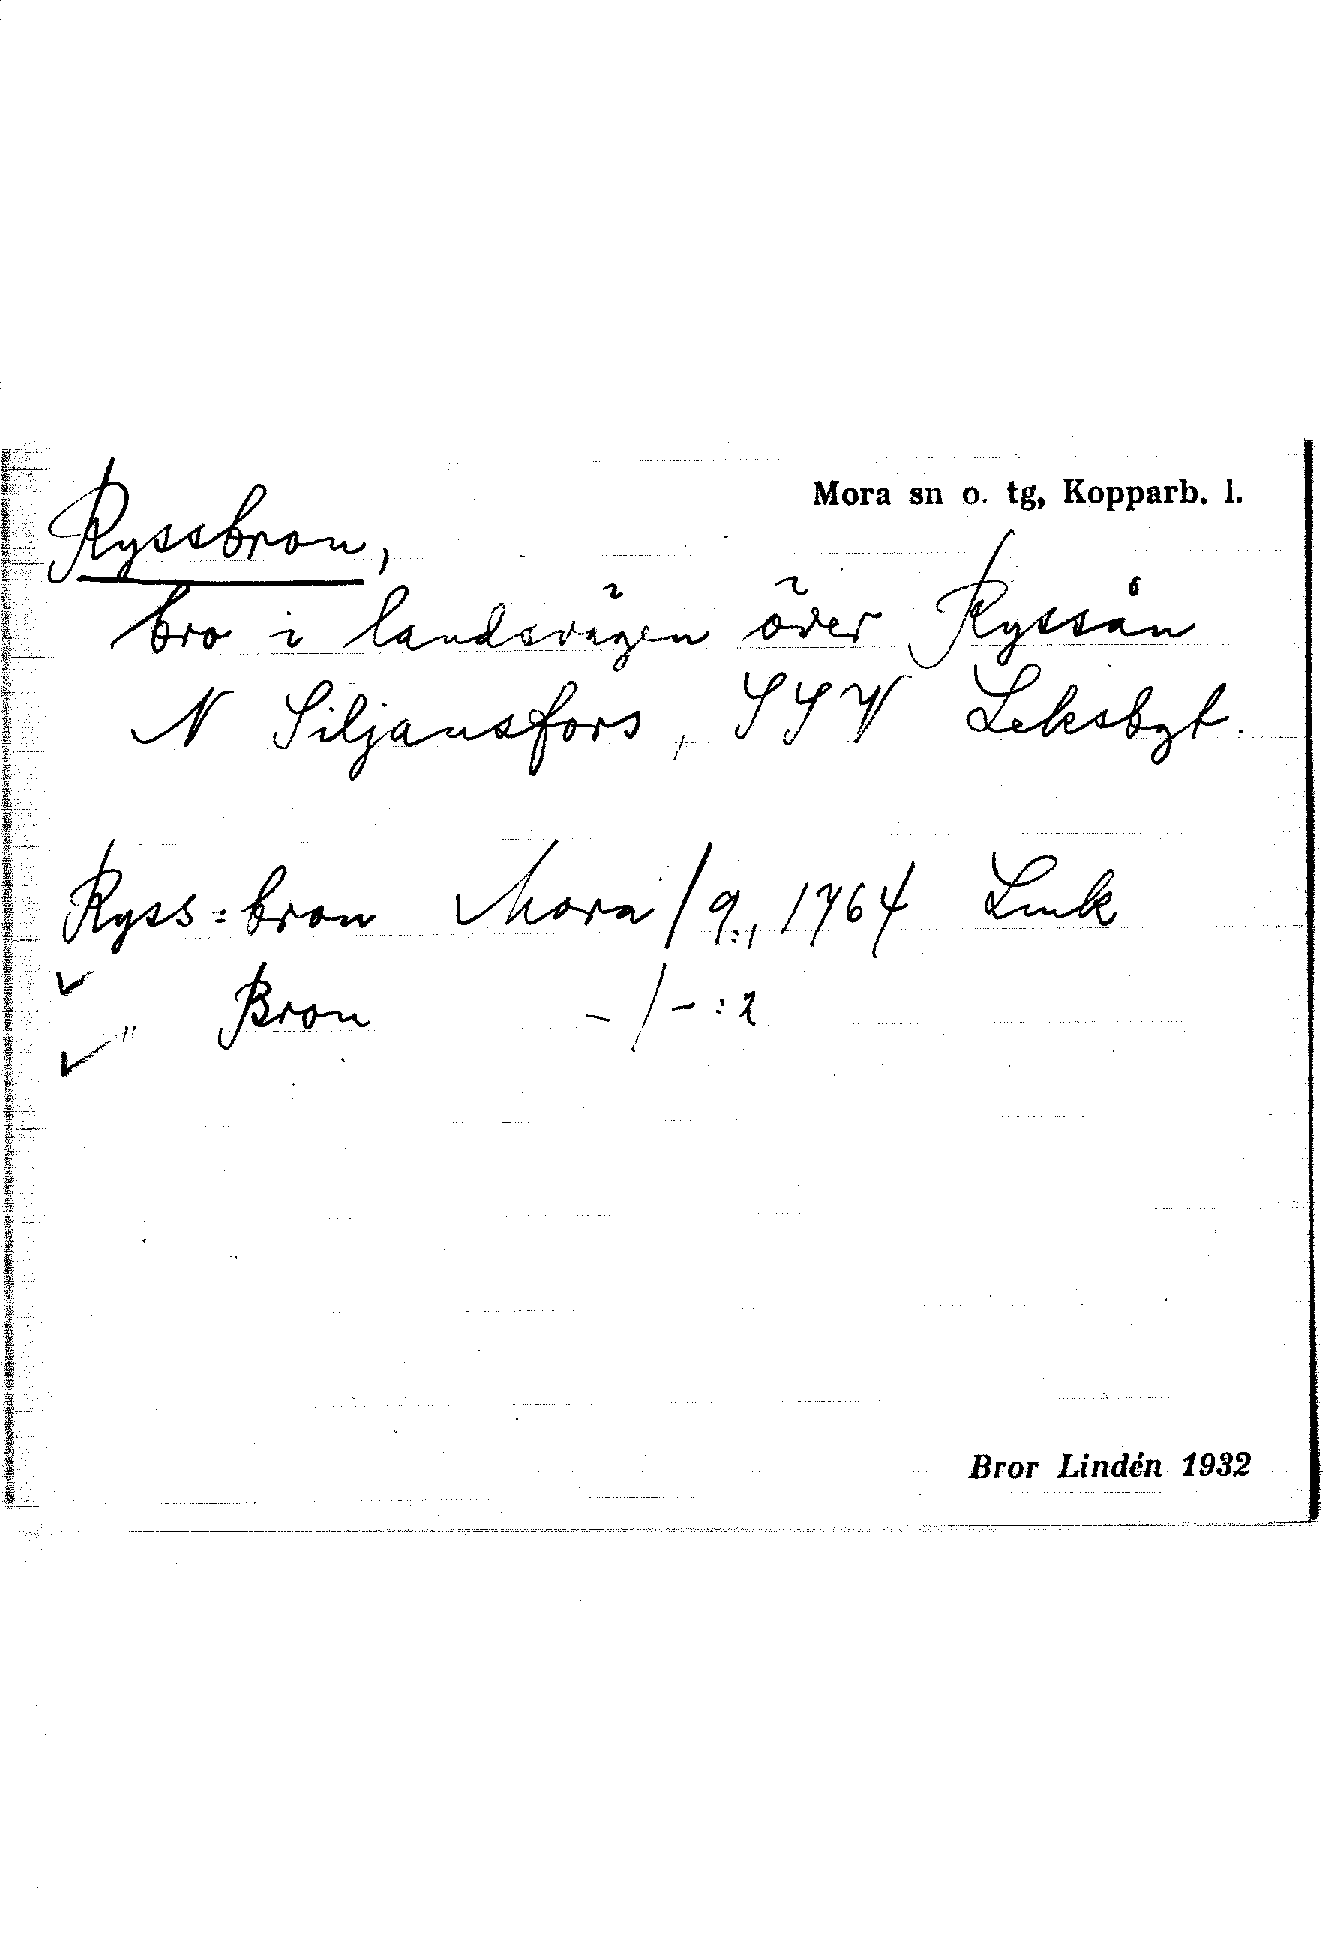 Mora sn o. tg, Kopparb. l.
Ryssbron,
bro i landsvägen över Ryssån
N Siljansfors, SSV Leksbgt.
Ryss=bron Mora/9:1, 1764 Lmk
" Bron -/-:2
Bror Lindén 1932